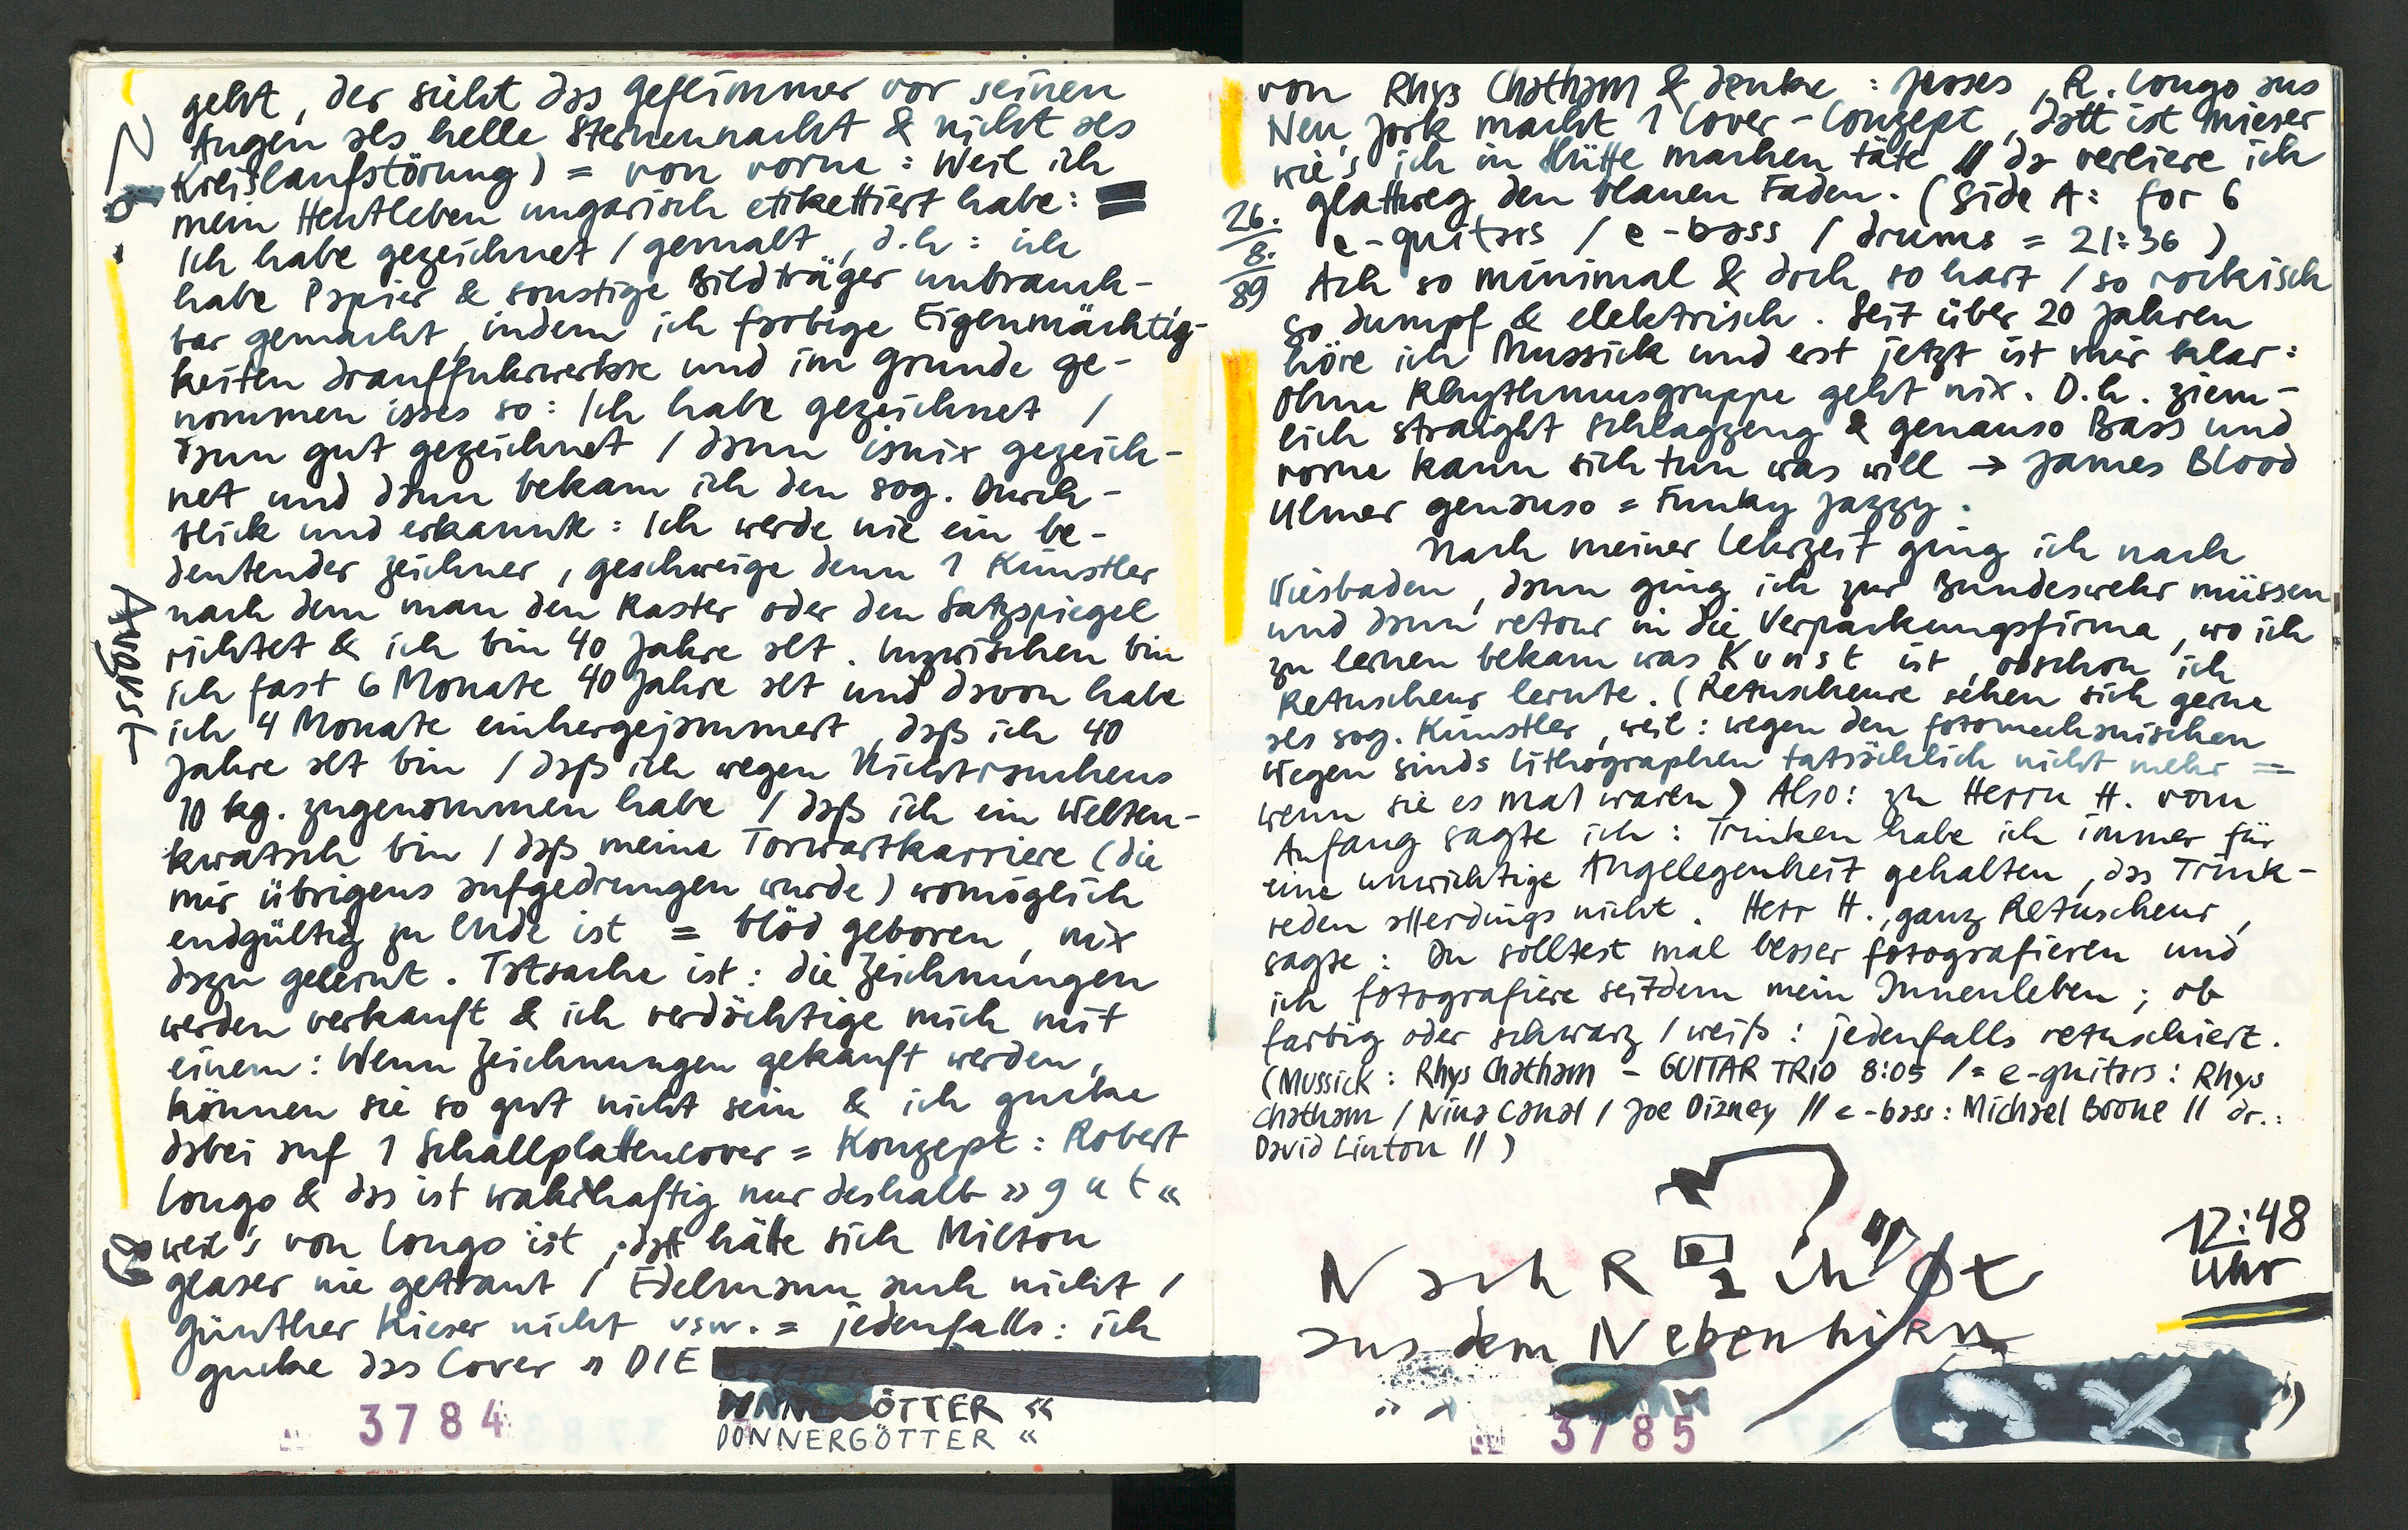 geht, der sieht das Geflimmer vor seinen
Augen als helle Sternennacht & nicht als
Kreislaufstörung) = von vorne: Weil ich
mein Heutleben ungarisch etikettiert habe:
Ich habe gezeichnet / gemalt, d.h: ich
habe Papier & sonstige Bildträger unbrauch-
bar gemacht, indem ich farbige Eigenmächtig-
keiten drauffuhrwerkte und im Grunde ge-
nommen isses so: Ich habe gezeichnet /
dann gut gezeichnet / dann isnix gezeich-
net und dann bekam ich den sog. Durch-
blick und erkannte: Ich werde nie ein be-
deutender Zeichner, geschweige denn 1 Künstler
nach dem man den Raster oder den Satzspiegel
richtet & ich bin 40 Jahre alt. Inzwischen bin
ich fast 6 Monate 40 Jahre alt und davon habe
ich 4 Monate einhergejammert, daß ich 40
Jahre alt bin / daß ich wegen Nichtrauchens
10 kg. zugenommen habe / daß ich ein Welten-
kwatsch bin / daß meine Torwartkarriere (die
mir übrigens aufgedrungen wurde) womöglich
endgültig zu Ende ist = blöd geboren, nix
dazu gelernt. Tatsache ist: die Zeichnungen
werden verkauft & ich verdächtige mich mit
einem: Wenn Zeichnungen gekauft werden,
können sie so gut nicht sein & ich gucke
dabei auf 1 Schallplattencover = Konzept: Robert
Longo & das ist wahrhaftig nur deshalb »gut«
weil's von Longo ist, datt hätte sich Milton
Glaser nie getraut / Edelmann auch nicht /
Günther Kieser nicht usw. = jedenfalls: ich
gucke das Cover » DIE
DONNERGÖTTER «
DONNERGÖTTER «
August
89
3784
von Rhys Chatham & denke: Jesses, R. Longo aus
Neu Jork macht 1 Cover-Conzept, datt ist mieser
wie's ich in Hütte machen täte // da verliere ich
glattweg den blauen Faden. (Side A: for 6
e-guitars / e-bass / drums = 21:36)
26.
8.
89
Ach so minimal & doch so hart / so rockisch
so dumpf & elektrisch. Seit über 20 Jahren
höre ich Mussick und erst jetzt ist mir klar:
Ohne Rhythmusgruppe geht nix. D.h. ziem-
lich straight Schlagzeug & genauso Bass und
vorne kann sich tun was will → James Blood
Ulmer genauso = Funky Jazzy.
Nach meiner Lehrzeit ging ich nach
Wiesbaden, dann ging ich zur Bundeswehr müssen
und dann retour in die Verpackungsfirma, wo ich
zu lernen bekam was Kunst ist, obschon ich
Retuscheur lernte. (Retuscheure sehen sich gerne
als sog. Künstler, weil: wegen den fotomechanischen
Wegen sinds Lithographen tatsächlich nicht mehr =
wenn sie es mal waren) Also: zu Herrn H. vom
Anfang sagte ich: Trinken habe ich immer für
eine unwichtige Angelegenheit gehalten, das Trink-
reden allerdings nicht. Herr H., ganz Retuscheur,
sagte: Du solltest mal besser fotografieren und
ich fotografiere seitdem mein Innenleben; ob
farbig oder schwarz / weiß: jedenfalls retuschiert.
(Mussick: Rhys Chatham - GUITAR TRIO 8:05 / = e-guitars: Rhys
Chatham / Nina Canal / Joe Dizney // e-bass: Michael Brone // dr.:
David Linton // )
12:48
Uhr
aus dem Nebenhirn
3785